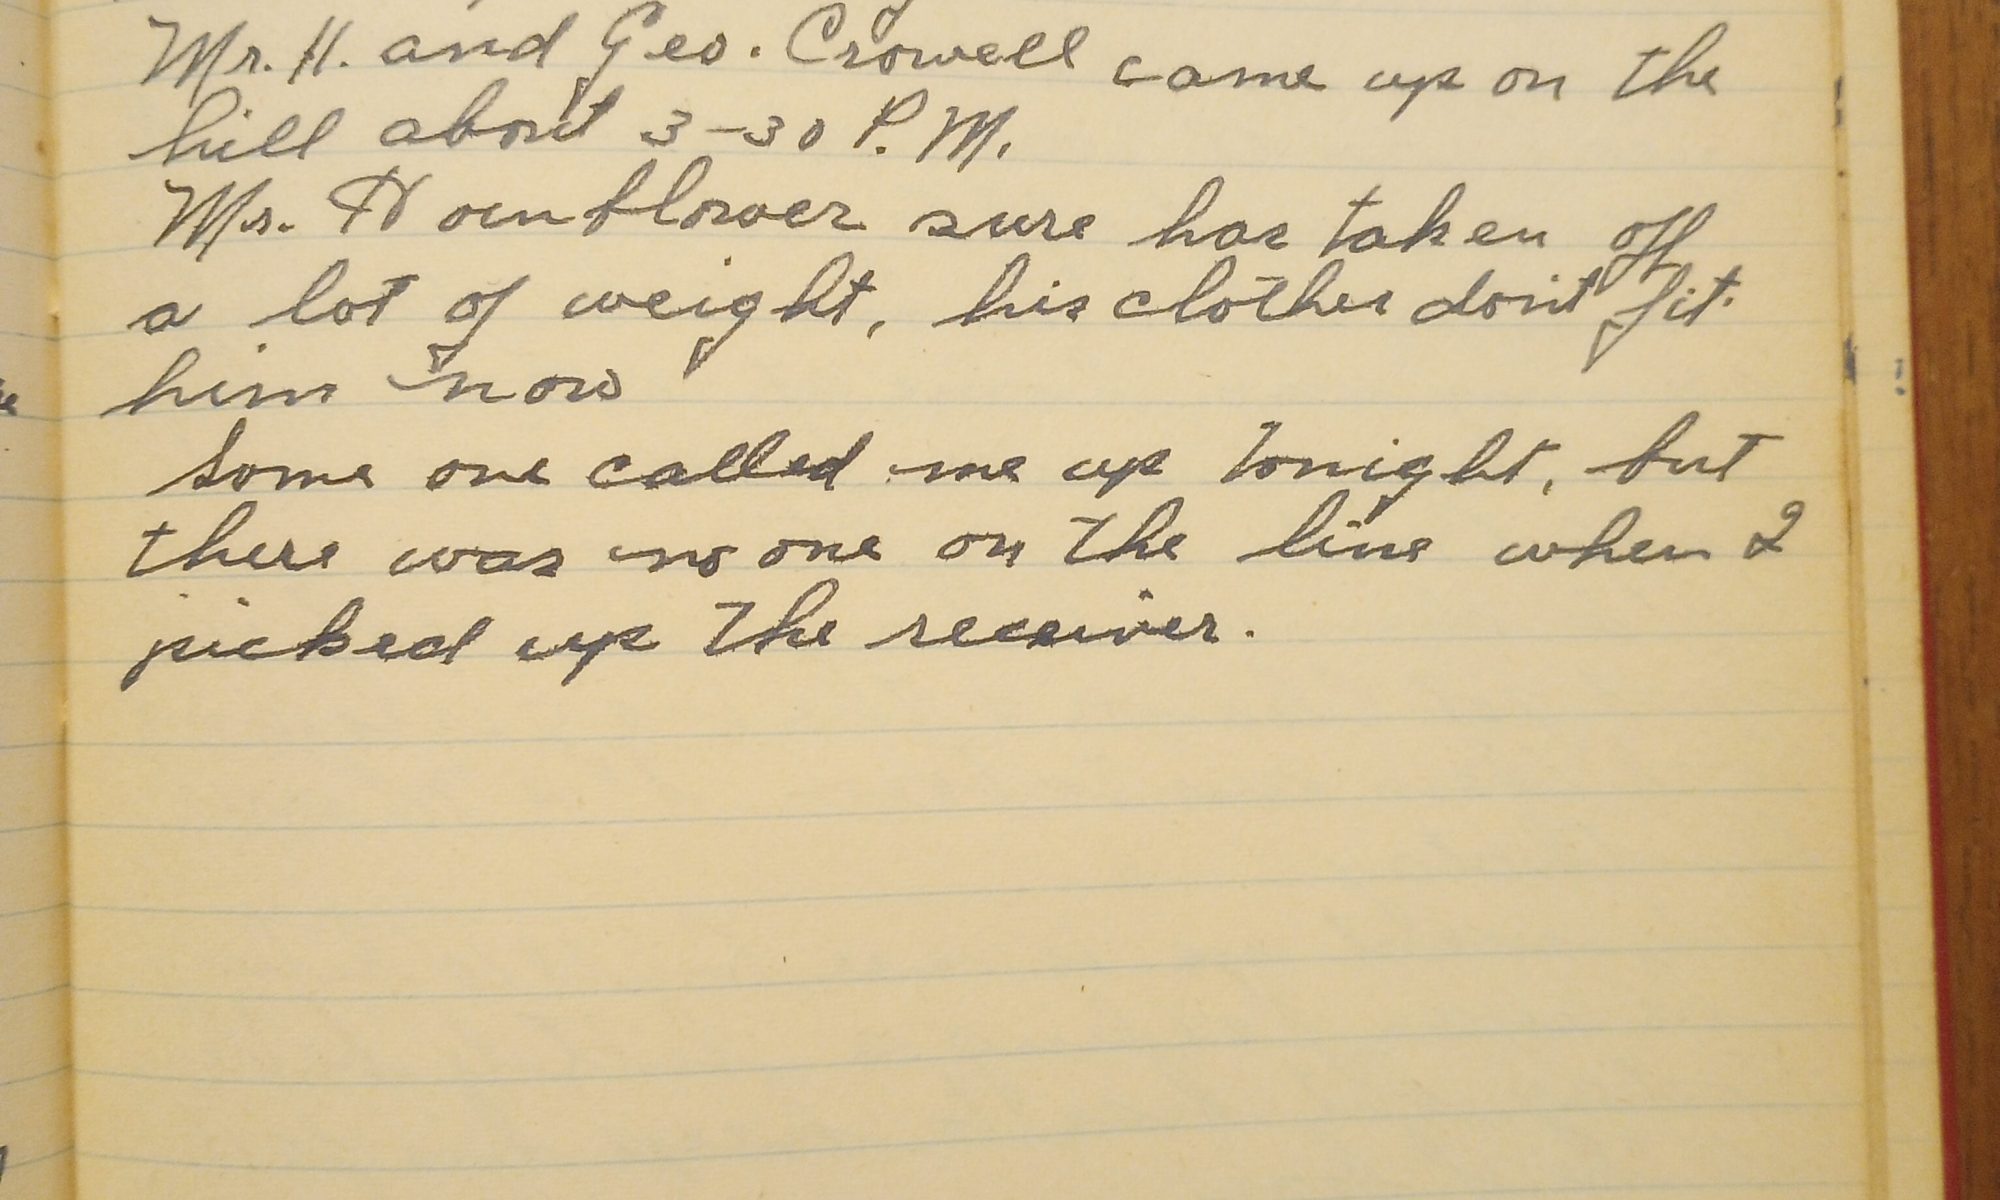 Mr. H. and Geo. Crowell came up on the
hill about 3-30 P.M.
Mr. Hornblower sure has taken off
a lot of weight, his clothes don't fit
him now
Some one called me up tonight, but
there was no one on the line when I
picked up the receiver.